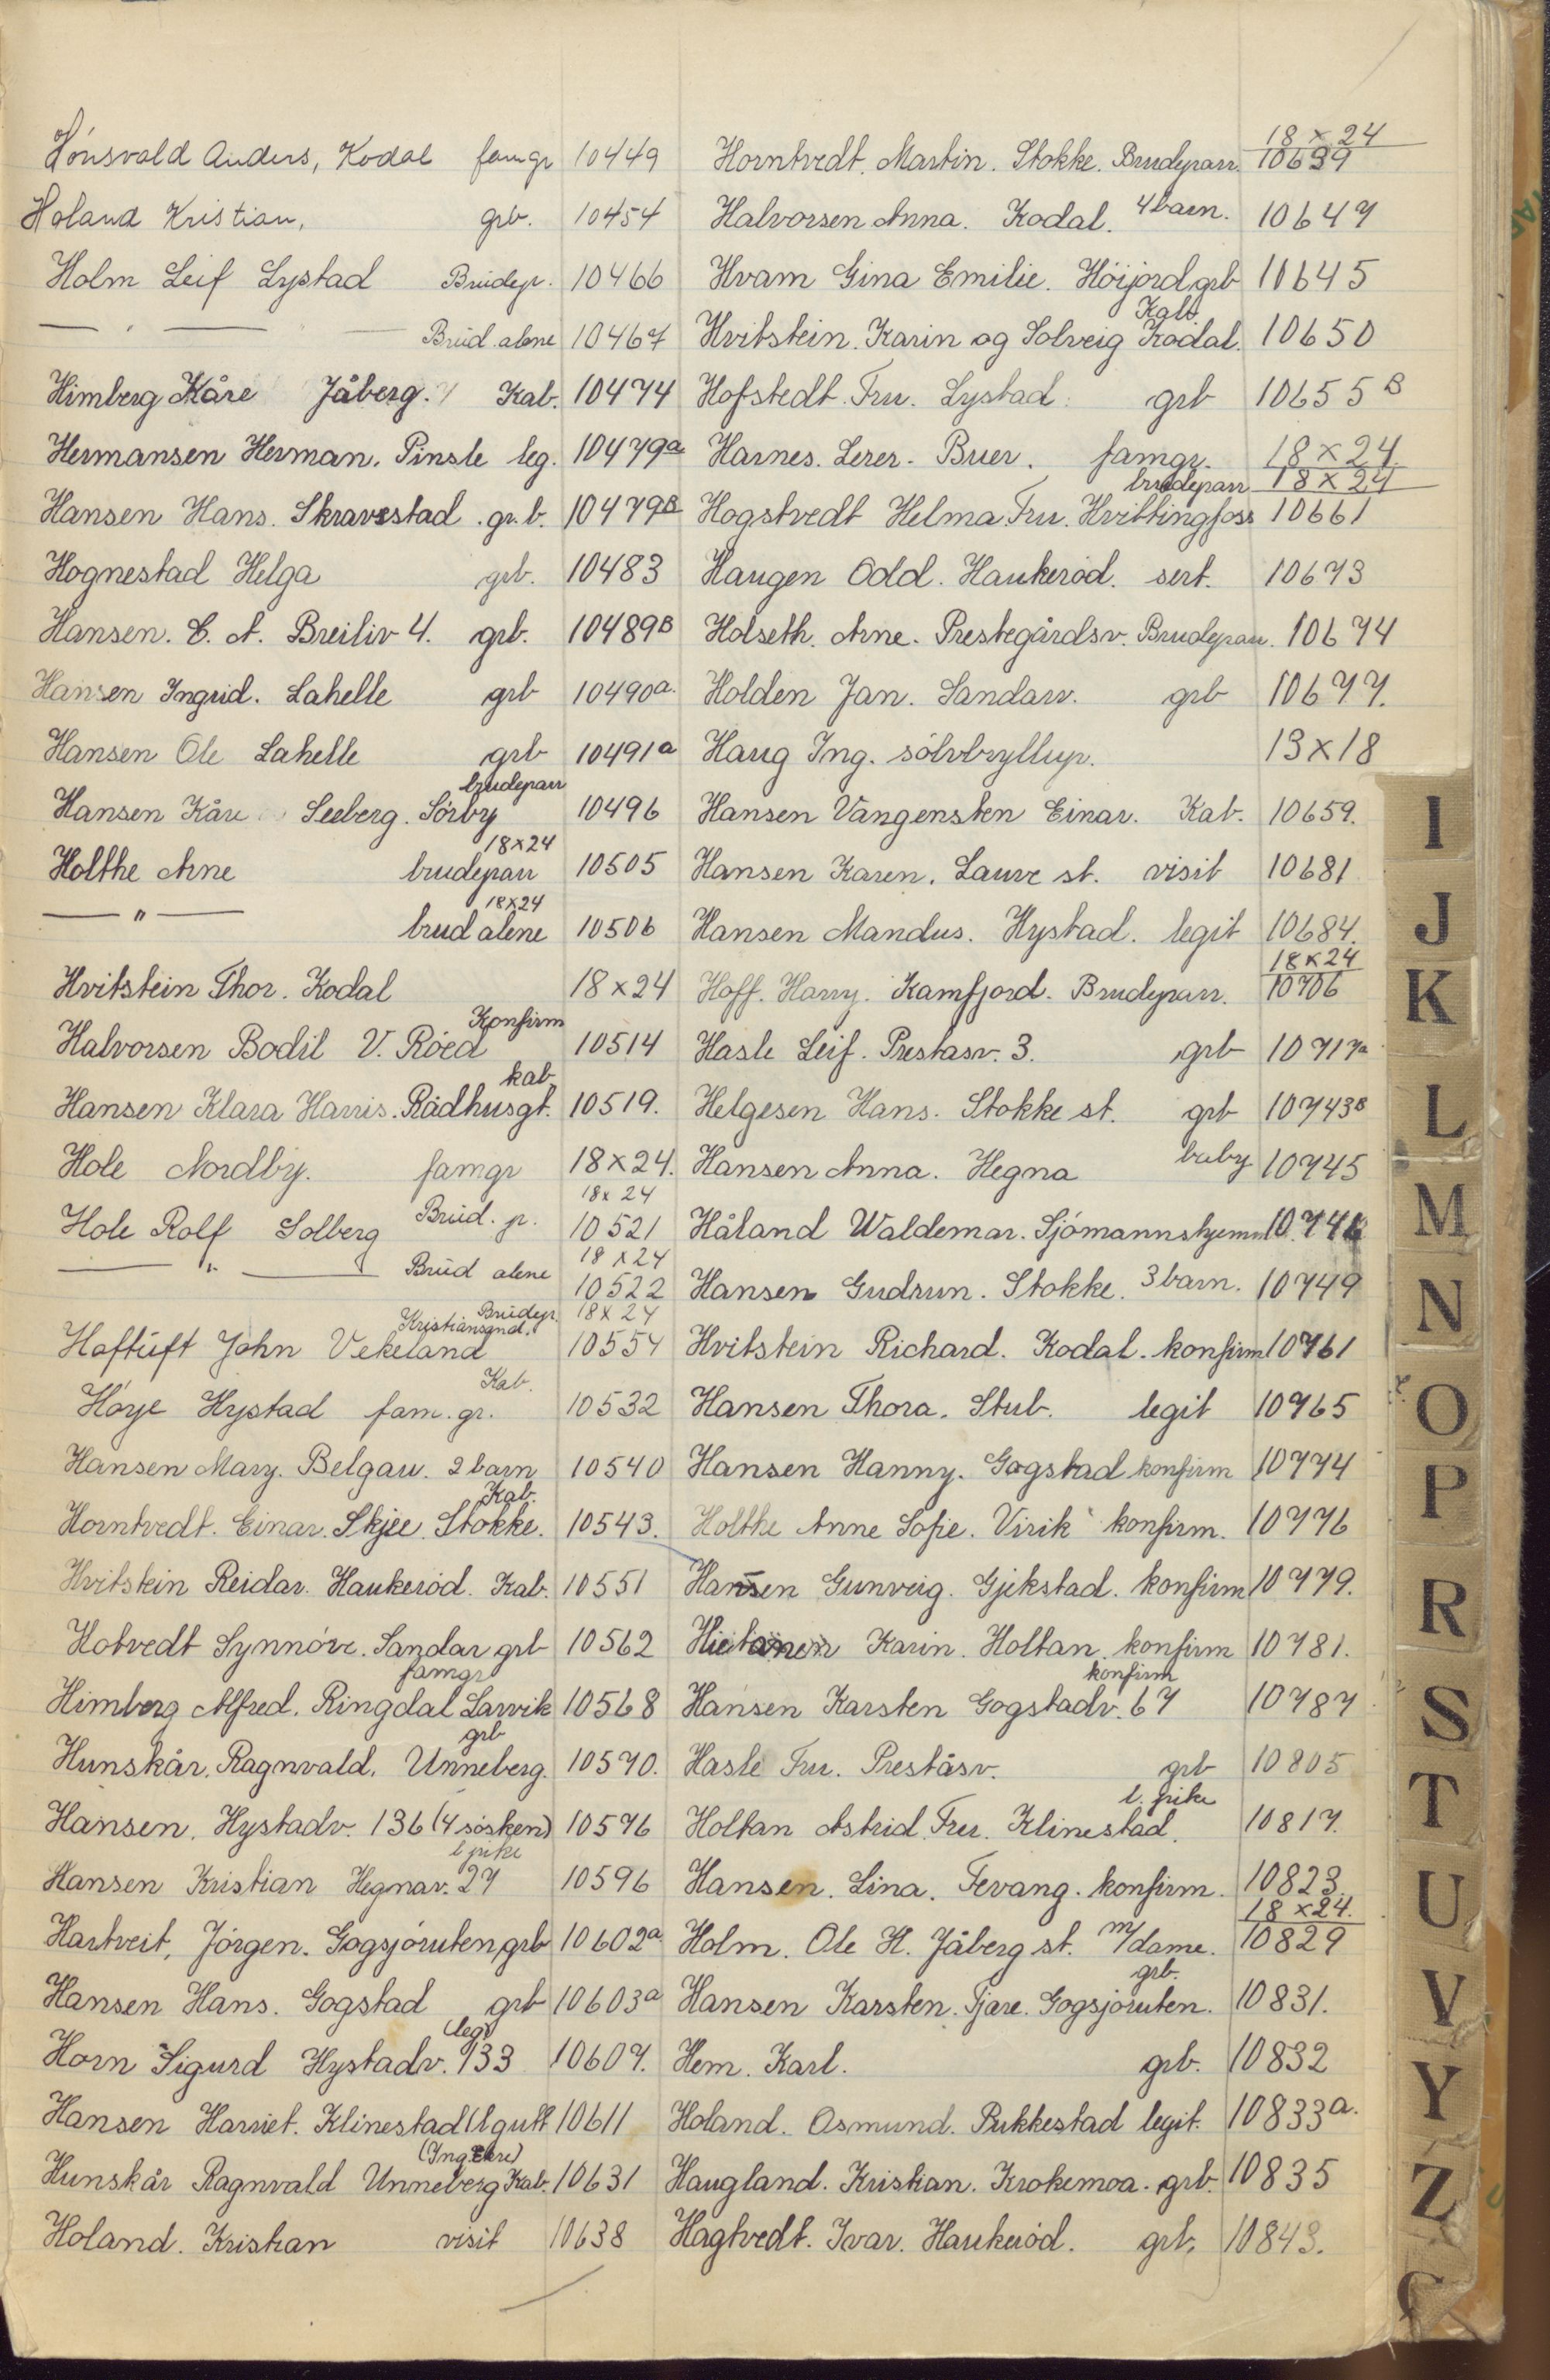 Hónsvald Anders, Kodal famgr 10449
Holand Kristian, grb. 10454
Holm Leif Lystad Brudepr. 10466
— " — Brud alene 10467
Himberg Kåre Jåberg. Kab. 10474
Hermansen Herman. Pinsle leg. 10479a
Hansen Hans. Skravestad gr. b. 10479B
Hognestad Helga grb. 10483
Hansen. C. A. Breiliv 4. grb. 10489B
Hansen Ingrid. Lahelle grb 10490a.
Hansen Ole Lahelle grb 10491a
brudeparr
Hansen Kåre Seeberg. Sórby 10496
18x24
Holthe Arne brudeparr 10505
18x24
— " — brud alene 10506
Hvitstein Thor. Kodal 18x24
Konfirm
Halvorsen Bodil V. Róed 10514
kab
Hansen Klara Harris. Rådhusgt. 10519.
Hole Nordby. famgr 18x24.
18x24
Hole Rolf Solberg Brud. p. 10521
18x24
— " — Brud alene 10522
Brudepr. 18x24
Kristiansand.
Haftuft John Vekeland 10554
Kab.
Hóye Hystad fam. gr. 10532
Hansen Mary. Belgau. 2 barn 10540
Kab.
Horntvedt. Einar. Skjee. Stokke. 10543.
Hvitstein Reidar. Haukeród. Kab. 10551
Hotvedt Synnóve. Sandar grb 10562
famgr
Himberg Alfred. Ringdal Larvik 10568
grb
Hunskår. Ragnvald. Unneberg. 10570.
Hansen. Hystadv. 136 (4 sósken) 10576
l pike
Hansen Kristian Hegnav. 27 10596
Hartveit, Jórgen. Gogsjóruten grb 10602a
Hansen Hans. Gogstad grb 10603a
(leg)
Horn Sigurd Hystadv. 133 10607.
Hansen Harriet. Klinestad (l gutt 10611
(Ing. Ekre)
Hunskår Ragnvald Unneberg Kab. 10631
Holand. Kristian visit 10638
18x24
Horntvedt. Martin. Stokke. Brudeparr. 10639
Halvorsen Anna. Kodal. 4 barn. 10647
Hvam Gina Emilie. Höijord grb 10645
Kab
Hvitstein. Karin og Solveig Kodal. 10650
Hofstedt. Fru. Lystad. grb 10655B
Harnes. Lerer. Buer. famgr. 18x24.
brudeparr 18x24
Hogstvedt Helma Fru. Hvittingfoss 10661
Haugen Odd. Haukeród. sert. 10673
Holseth. Arne. Prestegårdsv. Brudeparr. 10674
Holden Jan. Sandarv. grb 10677.
Haug Ing. sólvbryllup. 13x18
Hansen Vangensten Einar. Kab. 10659.
Hansen Karen. Lauve st. visit 10681
Hansen Mandus. Hystad. legit 10684.
18x24
Hoff. Harry. Kamfjord. Brudeparr. 10706
Hasle Leif. Prestasv. 3. grb 10717a
Helgesen Hans. Stokke st. grb 10743B
Hansen Anna. Hegna baby 10745
Håland Waldemar. Sjómannshjemm 10746
Hansen Gudrun. Stokke. 3 barn. 10749
Hvitstein Richard. Kodal. konfirm 10761
Hansen Thora. Stub. legit 10765
Hansen Hanny. Gogstad konfirm 10774
Holthe Anne Sofie. Virik konfirm. 10776
Hansen Gunveig. Gjekstad. konfirm 10779.
Hietanen Karin. Holtan. konfirm 10781.
konfirm
Hansen Karsten Gogstadv. 67 10787
Hasle Fru. Preståsv. grb 10805
l. pike
Holtan Astrid. Fru. Klinestad. 10817.
Hansen. Lina. Fevang. konfirm. 10823.
18x24.
Holm. Ole H. Jåberg st. m/dame. 10829
grb.
Hansen Karsten. Tjare. Gogsjóruten. 10831.
Hem. Karl. grb. 10832
Holand. Osmund. Pukkestad legit. 10833a.
Haugland. Kristian. Krokemoa. grb. 10835
Hagtvedt. Ivar. Haukeród. grb. 10843.
I
J
K
L
M
N
O
P
R
S
T
U
V
Y
Z